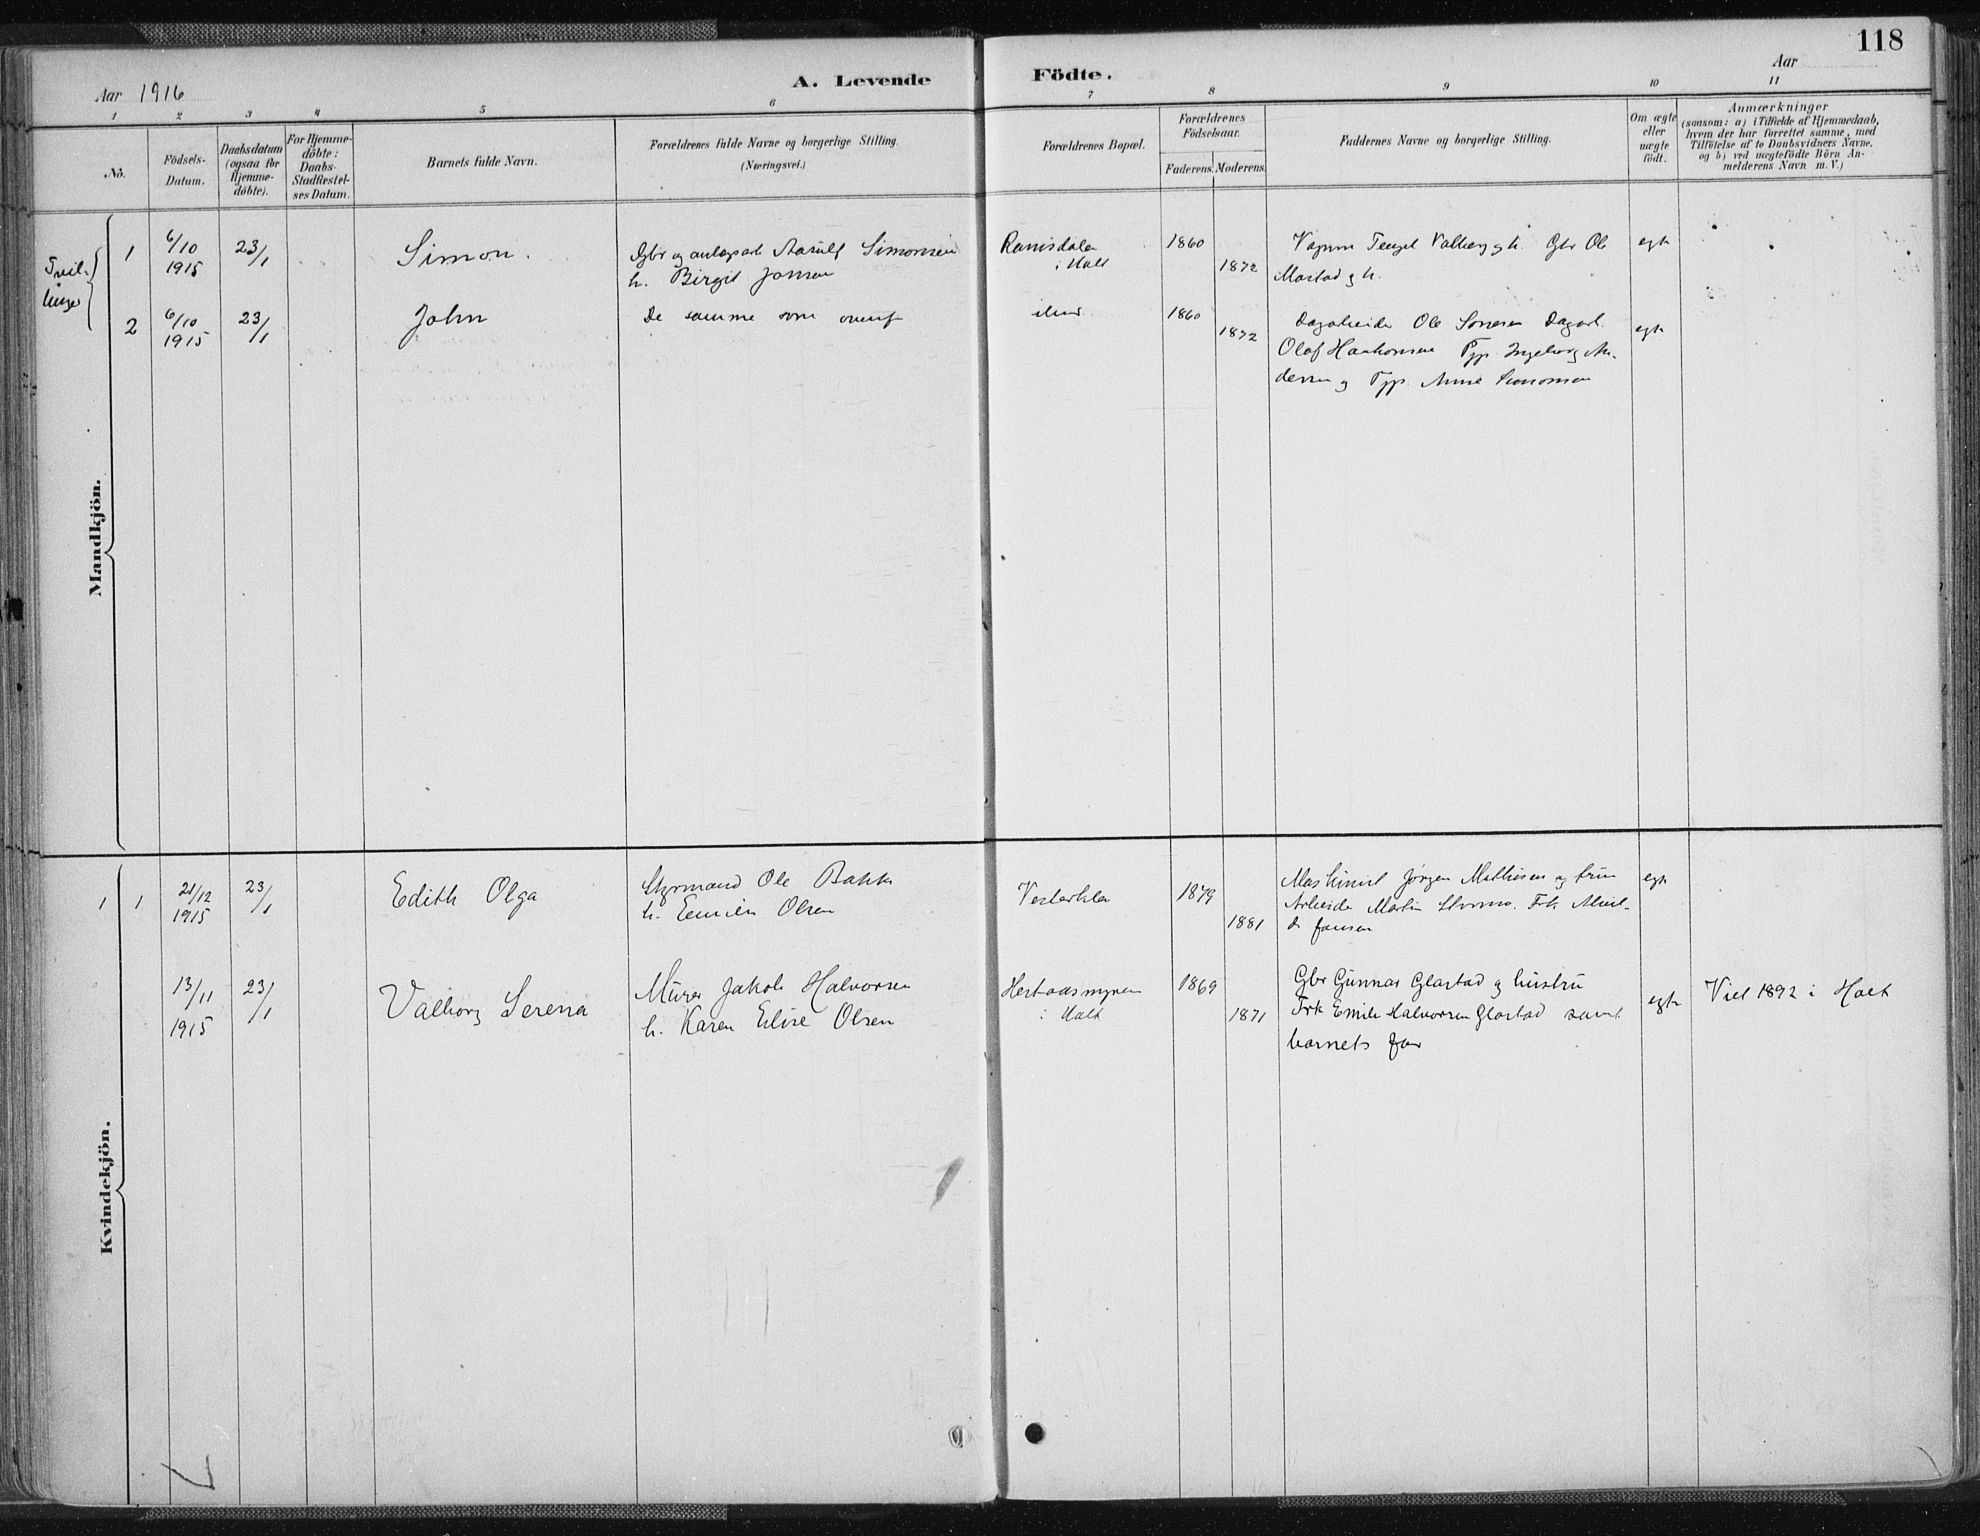 118
A. Levende Födte.
Aar 1916
Aar
1 2 3 4 5 6 7 8 9 10 11
No.
Födsels-Datum.
Daabsdatum (ogsaa for Hjemmedöbte).
For Hjemmedöbte: Daabs-Stadfæstelses Datum.
Barnets fulde Navn.
Forældrenes fulde Navne og borgerlige Stilling.
(Næringsvei.)
Forældrenes Bopæl.
Forældrenes Födselsaar.
Faderens. Moderens.
Faddernes Navne og borgerlige Stilling.
Om ægte eller uægte födt.
Anmærkninger
(saasom: a) i Tilfælde af Hjemmedaab,
hvem der har forrettet samme, med
Tilföielse af to Daabsvidners Navne,
og b) ved uægtefödte Börn Anmelderens Navn m. V.)
Mandkjön.
Tvillinger
1 6/10 1915 23/1 Simon.
Gbr og Simonsen
h. Birgit Jonsen
i Holt
1860 1872
Gbr Ole
Mostad g h.
egte
2 6/10 1915 23/1 John
De samme som ovenf
1860 1872
Dagarbeider Ole Dagarb.
Olaf Haakonsen Pgp. Ingeborg An-
dersen og Pgp. Anne
egte
Kvindekjön.
1 1 21/12 1915 23/1 Edith Olga
Styrmand Ole Bakke
h. Olsen
1879 1881
Maskinist Jørgen Mathisen og fru
Arbeider Martin Frk.
Jansen
egte
13/11 1915 23/1 Valborg Serena
Murer Jakob Halvorsen
h. Karen Elise Olsen
i Holt
1869 1871
Gbr Gunnar Glastad og hustru
Frk Emilie Halvorsen Glastad samt
barnets far
egte
Viet 1892 i Holt